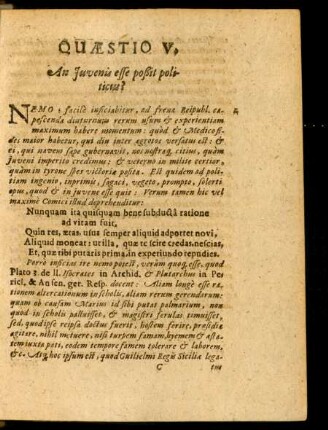 QUÆSTIO V.
An Juvenis esse possit poli-
ticus?
NEMO, facilè inficiabitur, ad frena Reipubl. ca-
pessenda diuturnum rerum usum & experientiam
maximum habere momentum: quòd & Medico fi-
des maior habetur, qui diu inter ægrotos versatus est: &
ei, qui navem sæpe gubernavit, nec naufrag. citius, quàm
Juveni imperito credimus: & veterno in milite certior,
quàm in tyrone spes victoriæ posita. Est quidem ad poli-
tiam ingenio, inprimis, sagaci, vegeto, prompto, solerti
opus, quod & in juvene esse quit: Verum tamen hic vel
maximè Comici illud deprehenditur:
Nunquam ita quisquam bene subducta ratione
ad vitam fuit,
Quin res, ætas, usus semper aliquid adportet novi,
Aliquid moneat: ut illa, quæ te scire credas, nescias,
Et, quæ tibi putaris prima, in experiundo repudies.
Porrò inficias ire nemo potest, verùm quoq; esse, quod
Plato 2. de ll. Isocrates in Archid. & Plutarchus in Pe
ricl, & An sen. ger. Resp. docent: Aliam longè esse ra-
tionem altercationum in scholis, aliam rerum gerendarum:
quam ob causam Marium id sibi putat palmarium, non
quòd in scholis
sed, quòd ipse reipsa doctus fuerit, hostem ferire, præsidia
agitare, nihil metuere, nisi turpem famam, hyemem & æsta-
tem juxta pati, eodem tempore famem tolerare & laborem,
&c. Atq; hoc ipsum est, quod Guilielmi Regis Siciliæ lega-
C